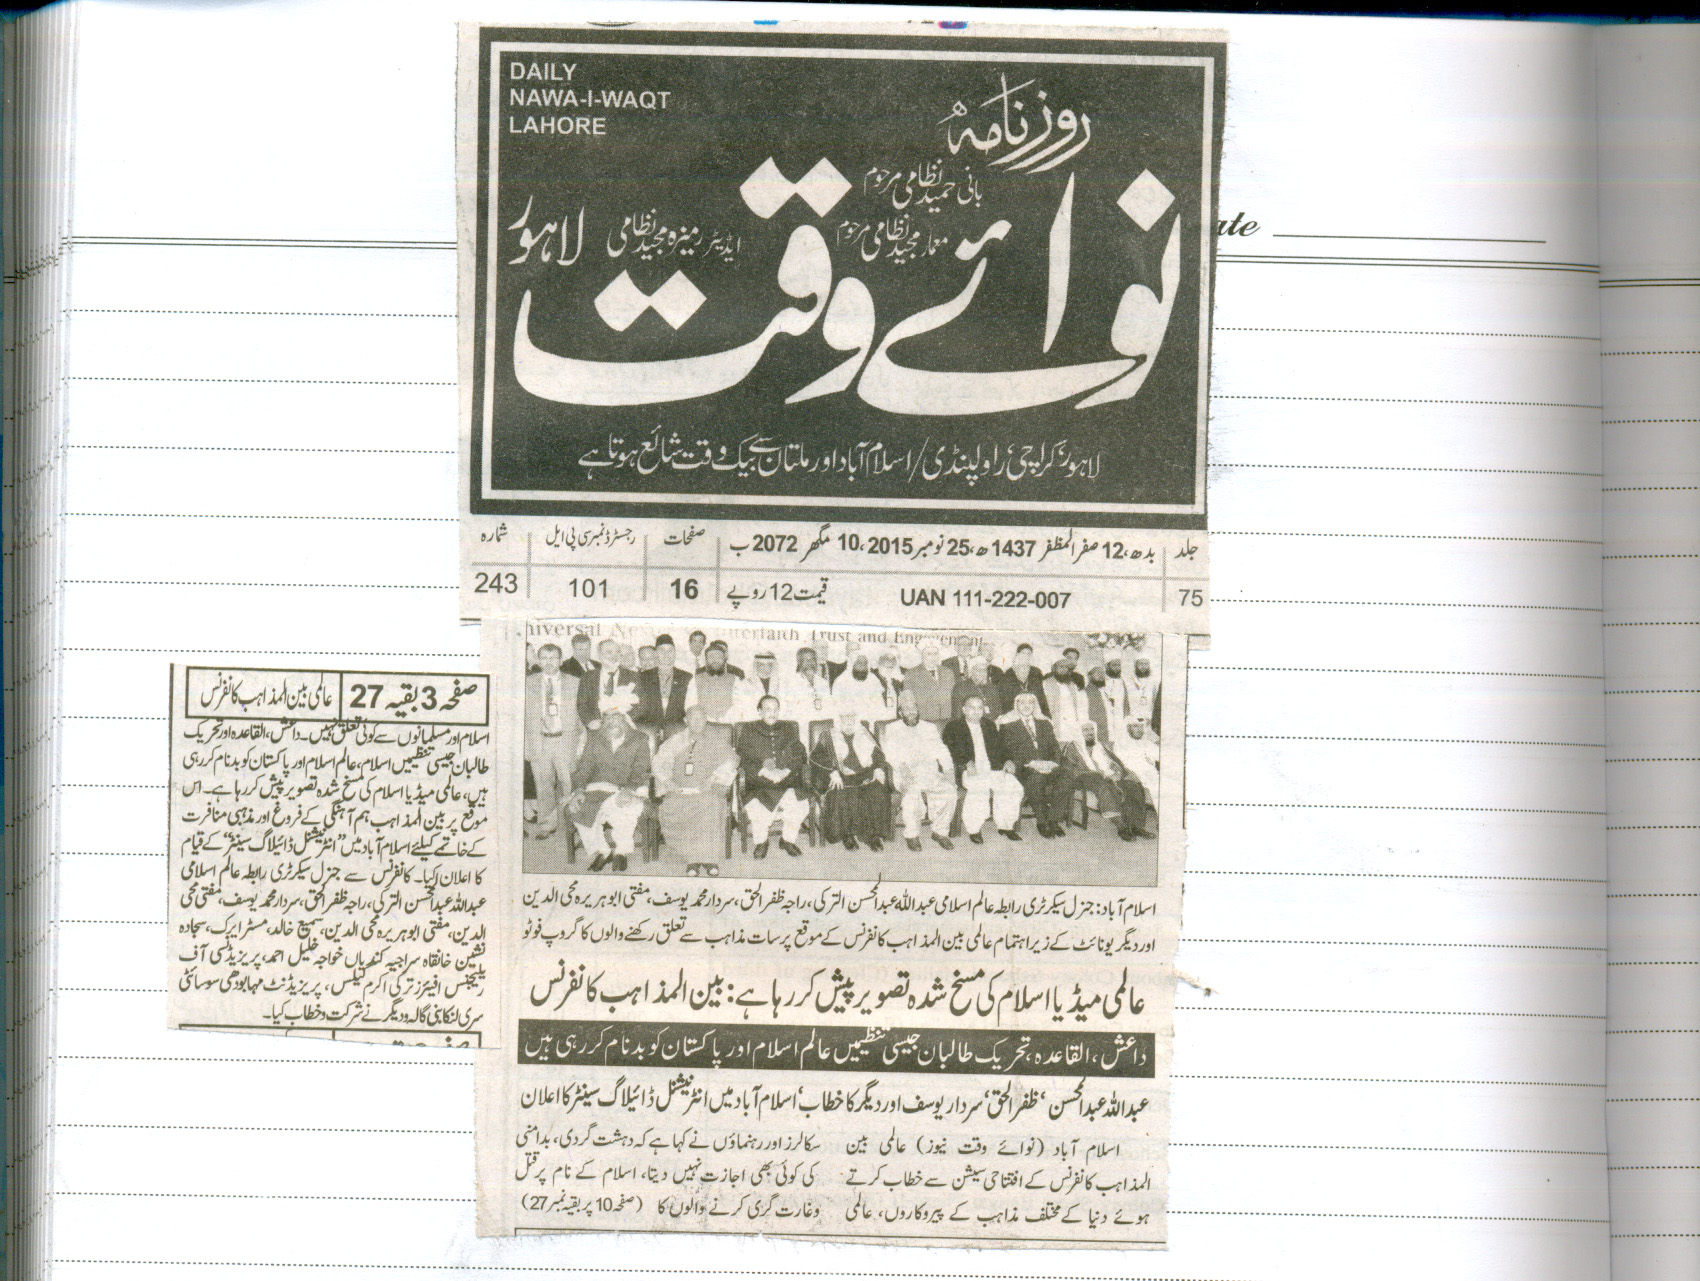 DAILY
NAWA-I-WAQT
LAHORE
روزنامہ
بانی حمید نظامی مرحوم
معمار مجید نظامی مرحوم
نوائے وقت
ایڈیٹر رمیزہ مجید نظامی
لاہور
لاہور، کراچی، راولپنڈی/اسلام آباد اور ملتان سے بیک وقت شائع ہوتا ہے
جلد بدھ، 12 صفر المظفر 1437ھ، 25 نومبر 2015، 10 مگھر 2072 ب صفحات رجسٹرڈ نمبر سی پی ایل شمارہ
75 UAN 111-222-007 قیمت 12 روپے 16 101 243
ate
niversal Interfaith Trust and Engagement
اسلام آباد: جنرل سیکرٹری رابطہ عالم اسلامی عبداللہ عبدالمحسن الترکی، راجہ ظفر الحق، سردار محمد یوسف، مفتی ابوہریرہ محی الدین
اور دیگر یونائٹ کے زیراہتمام عالمی بین المذاہب کانفرنس کے موقع پر سات مذاہب سے تعلق رکھنے والوں کا گروپ فوٹو
عالمی میڈیا اسلام کی مسخ شدہ تصویر پیش کر رہا ہے: بین المذاہب کانفرنس
داعش، القاعدہ، تحریک طالبان جیسی تنظیمیں عالم اسلام اور پاکستان کو بدنام کر رہی ہیں
عبداللہ عبدالمحسن، ظفر الحق، سردار یوسف اور دیگر کا خطاب، اسلام آباد میں انٹرنیشنل ڈائیلاگ سینٹر کا اعلان
اسلام آباد (نوائے وقت نیوز) عالمی بین
المذاہب کانفرنس کے افتتاحی سیشن سے خطاب کرتے
ہوئے دنیا کے مختلف مذاہب کے پیروکاروں، عالمی
سکالرز اور رہنماؤں نے کہا ہے کہ دہشت گردی، بدامنی
کی کوئی بھی اجازت نہیں دیتا، اسلام کے نام پر قتل
وغارت گری کرنے والوں کا (صفحہ 10 پر بقیہ نمبر 27)
صفحہ 3 بقیہ 27 عالمی بین المذاہب کانفرنس
اسلام اور مسلمانوں سے کوئی تعلق نہیں۔ داعش، القاعدہ اور تحریک
طالبان جیسی تنظیمیں اسلام، عالم اسلام اور پاکستان کو بدنام کر رہی
ہیں، عالمی میڈیا اسلام کی مسخ شدہ تصویر پیش کر رہا ہے۔ اس
موقع پر بین المذاہب ہم آہنگی کے فروغ اور مذہبی منافرت
کے خاتمے کیلئے اسلام آباد میں "انٹرنیشنل ڈائیلاگ سینٹر" کے قیام
کا اعلان کیا۔ کانفرنس سے جنرل سیکرٹری رابطہ عالم اسلامی
عبداللہ عبدالمحسن الترکی، راجہ ظفر الحق، سردار محمد یوسف، مفتی محی
الدین، مفتی ابوہریرہ محی الدین، سمیع خالد، مسٹر ایرک، سجادہ
نشین خانقاہ سراجیہ کندیاں خواجہ خلیل احمد، پریزیڈنسی آف
ریلیجنس افیئرز ترکی اکرم کیلیس، پریزیڈنٹ مہابودھی سوسائٹی
سری لنکا بنی گالہ و دیگر نے شرکت و خطاب کیا۔